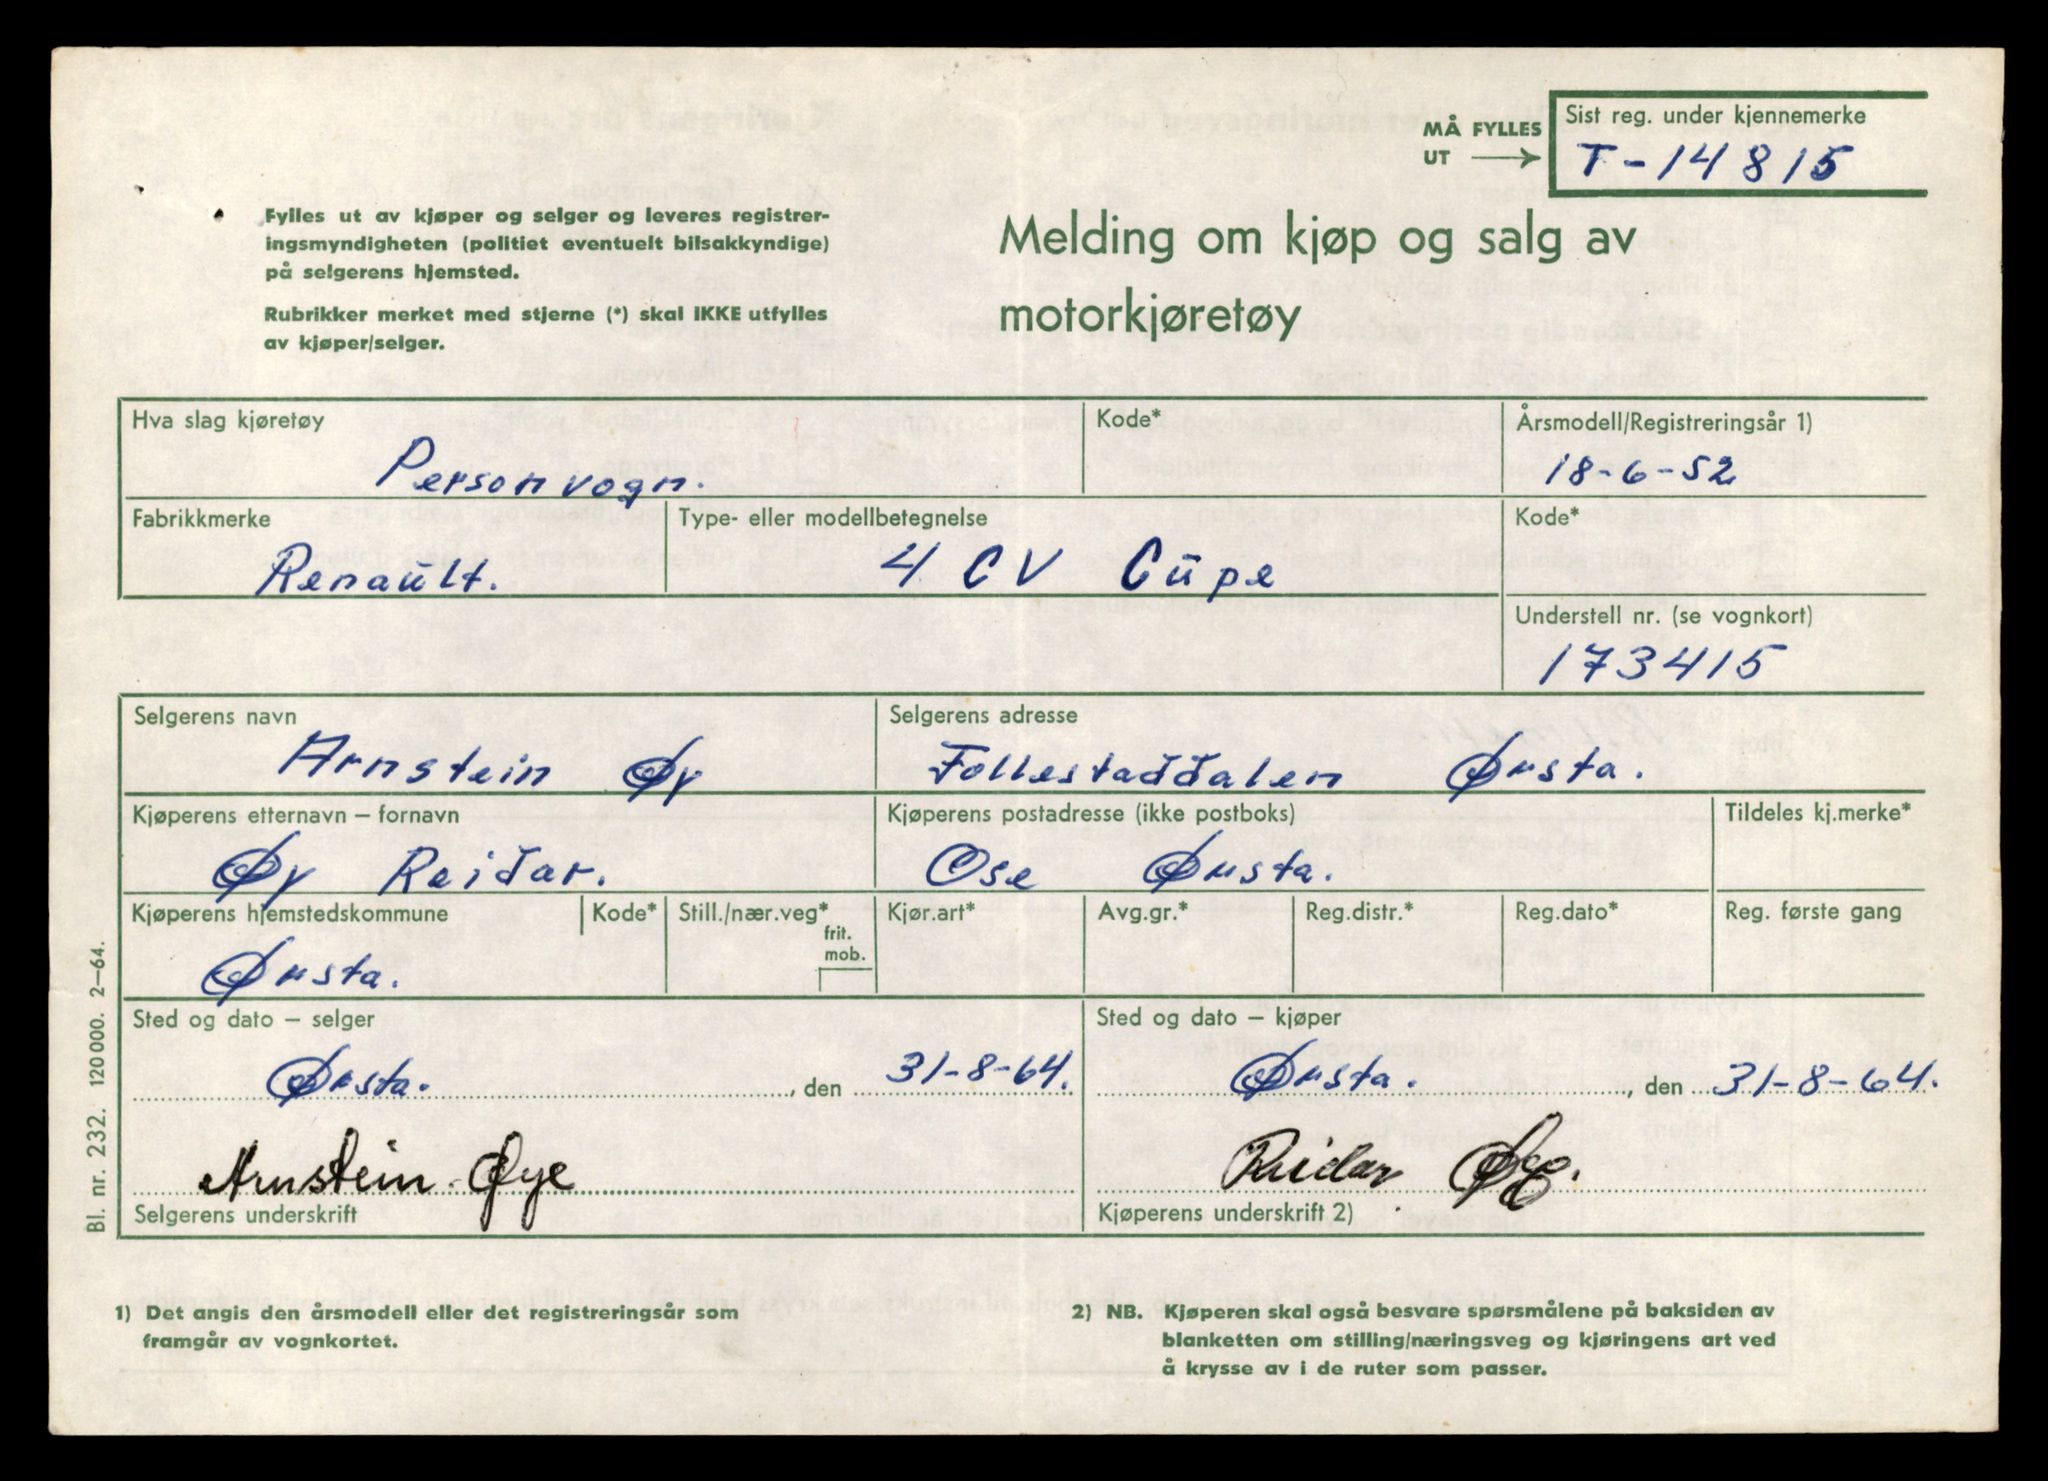 MÅ FYLLES
UT
Sist reg. under kjennemerke
T-14815
Fylles ut av kjøper og selger og leveres registrer-
ingsmyndigheten (politiet eventuelt bilsakkyndige)
på selgerens hjemsted.
Rubrikker merket med stjerne (*) skal IKKE utfylles
av kjøper/selger.
Melding om kjøp og salg av
motorkjøretøy
Hva slag kjøretøy
Personvogn.
Kode*
Årsmodell/Registreringsår 1)
18-6-52
Fabrikkmerke
Renault.
Type- eller modellbetegnelse
4 CV Cupe
Kode*
Understell nr. (se vognkort)
173415
Selgerens navn
Arnstein Øy
Selgerens adresse
Follestaddalen Ørsta.
Kjøperens etternavn – fornavn
Øy Reidar.
Kjøperens postadresse (ikke postboks)
Ose Ørsta.
Tildeles kj.merke*
Kjøperens hjemstedskommune
Ørsta.
Kode*
Still./nær.veg*
frit.
mob.
Kjør.art*
Avg.gr.*
Reg.distr.*
Reg.dato*
Reg. første gang
Sted og dato – selger
Ørsta., den 31-8-64.
Arnstein Øye
Selgerens underskrift
Sted og dato – kjøper
Ørsta., den 31-8-64.
Reidar
Kjøperens underskrift 2)
Bl. nr. 232. 120 000. 2–64.
1) Det angis den årsmodell eller det registreringsår som
framgår av vognkortet.
2) NB. Kjøperen skal også besvare spørsmålene på baksiden av
blanketten om stilling/næringsveg og kjøringens art ved
å krysse av i de ruter som passer.